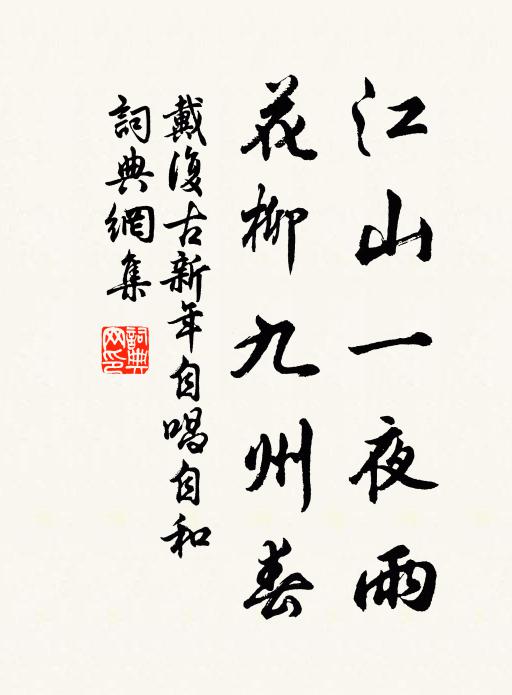 江山一夜雨
花柳九州春
戴復古新年自唱自和
詞典網集
詞典網印